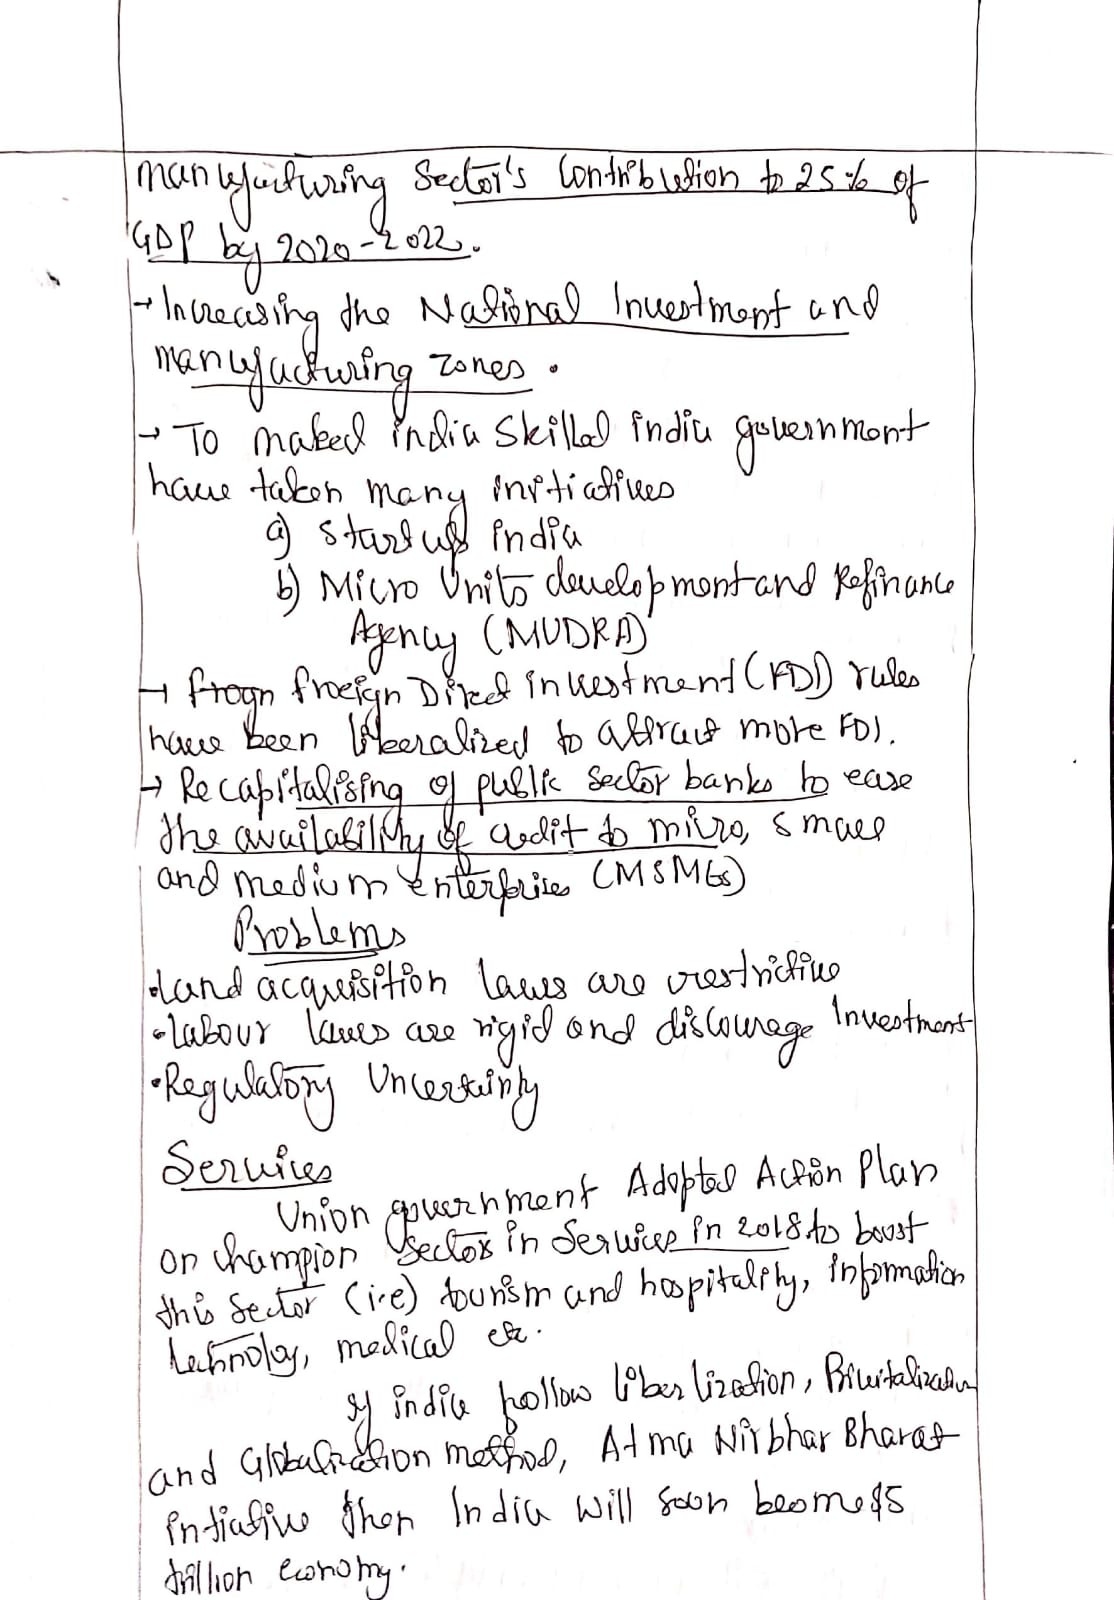 manufacturing Sector's Contribution to 25% of
GDP by 2020-2022.
→ Increasing the National Investment and
manufacturing zones.
→ To maked india Skilled india government
have taken many initiatives
a) Start up india
b) Micro Units development and Refinance
Agency (MUDRA)
→ froeign Direct investment (FDI) rules
have been liberalized to attract more FDI.
→ Recapitalising of public Sector banks to ease
the availability of credit to micro, small
and medium enterprises (MSMEs)
Problems
• land acquisition laws are restrictive
• labour laws are rigid and discourage Investment
• Regulatory Uncertainty
Services
Union government Adopted Action Plan
on champion Sector in Services in 2018 to boost
this Sector (i.e) tourism and hospitality, information
technoloy, medical etc.
If india follow liberlization,
and Globalization method, Atma Nirbhar Bharat
intiative then India will soon become $5
trillion economy.